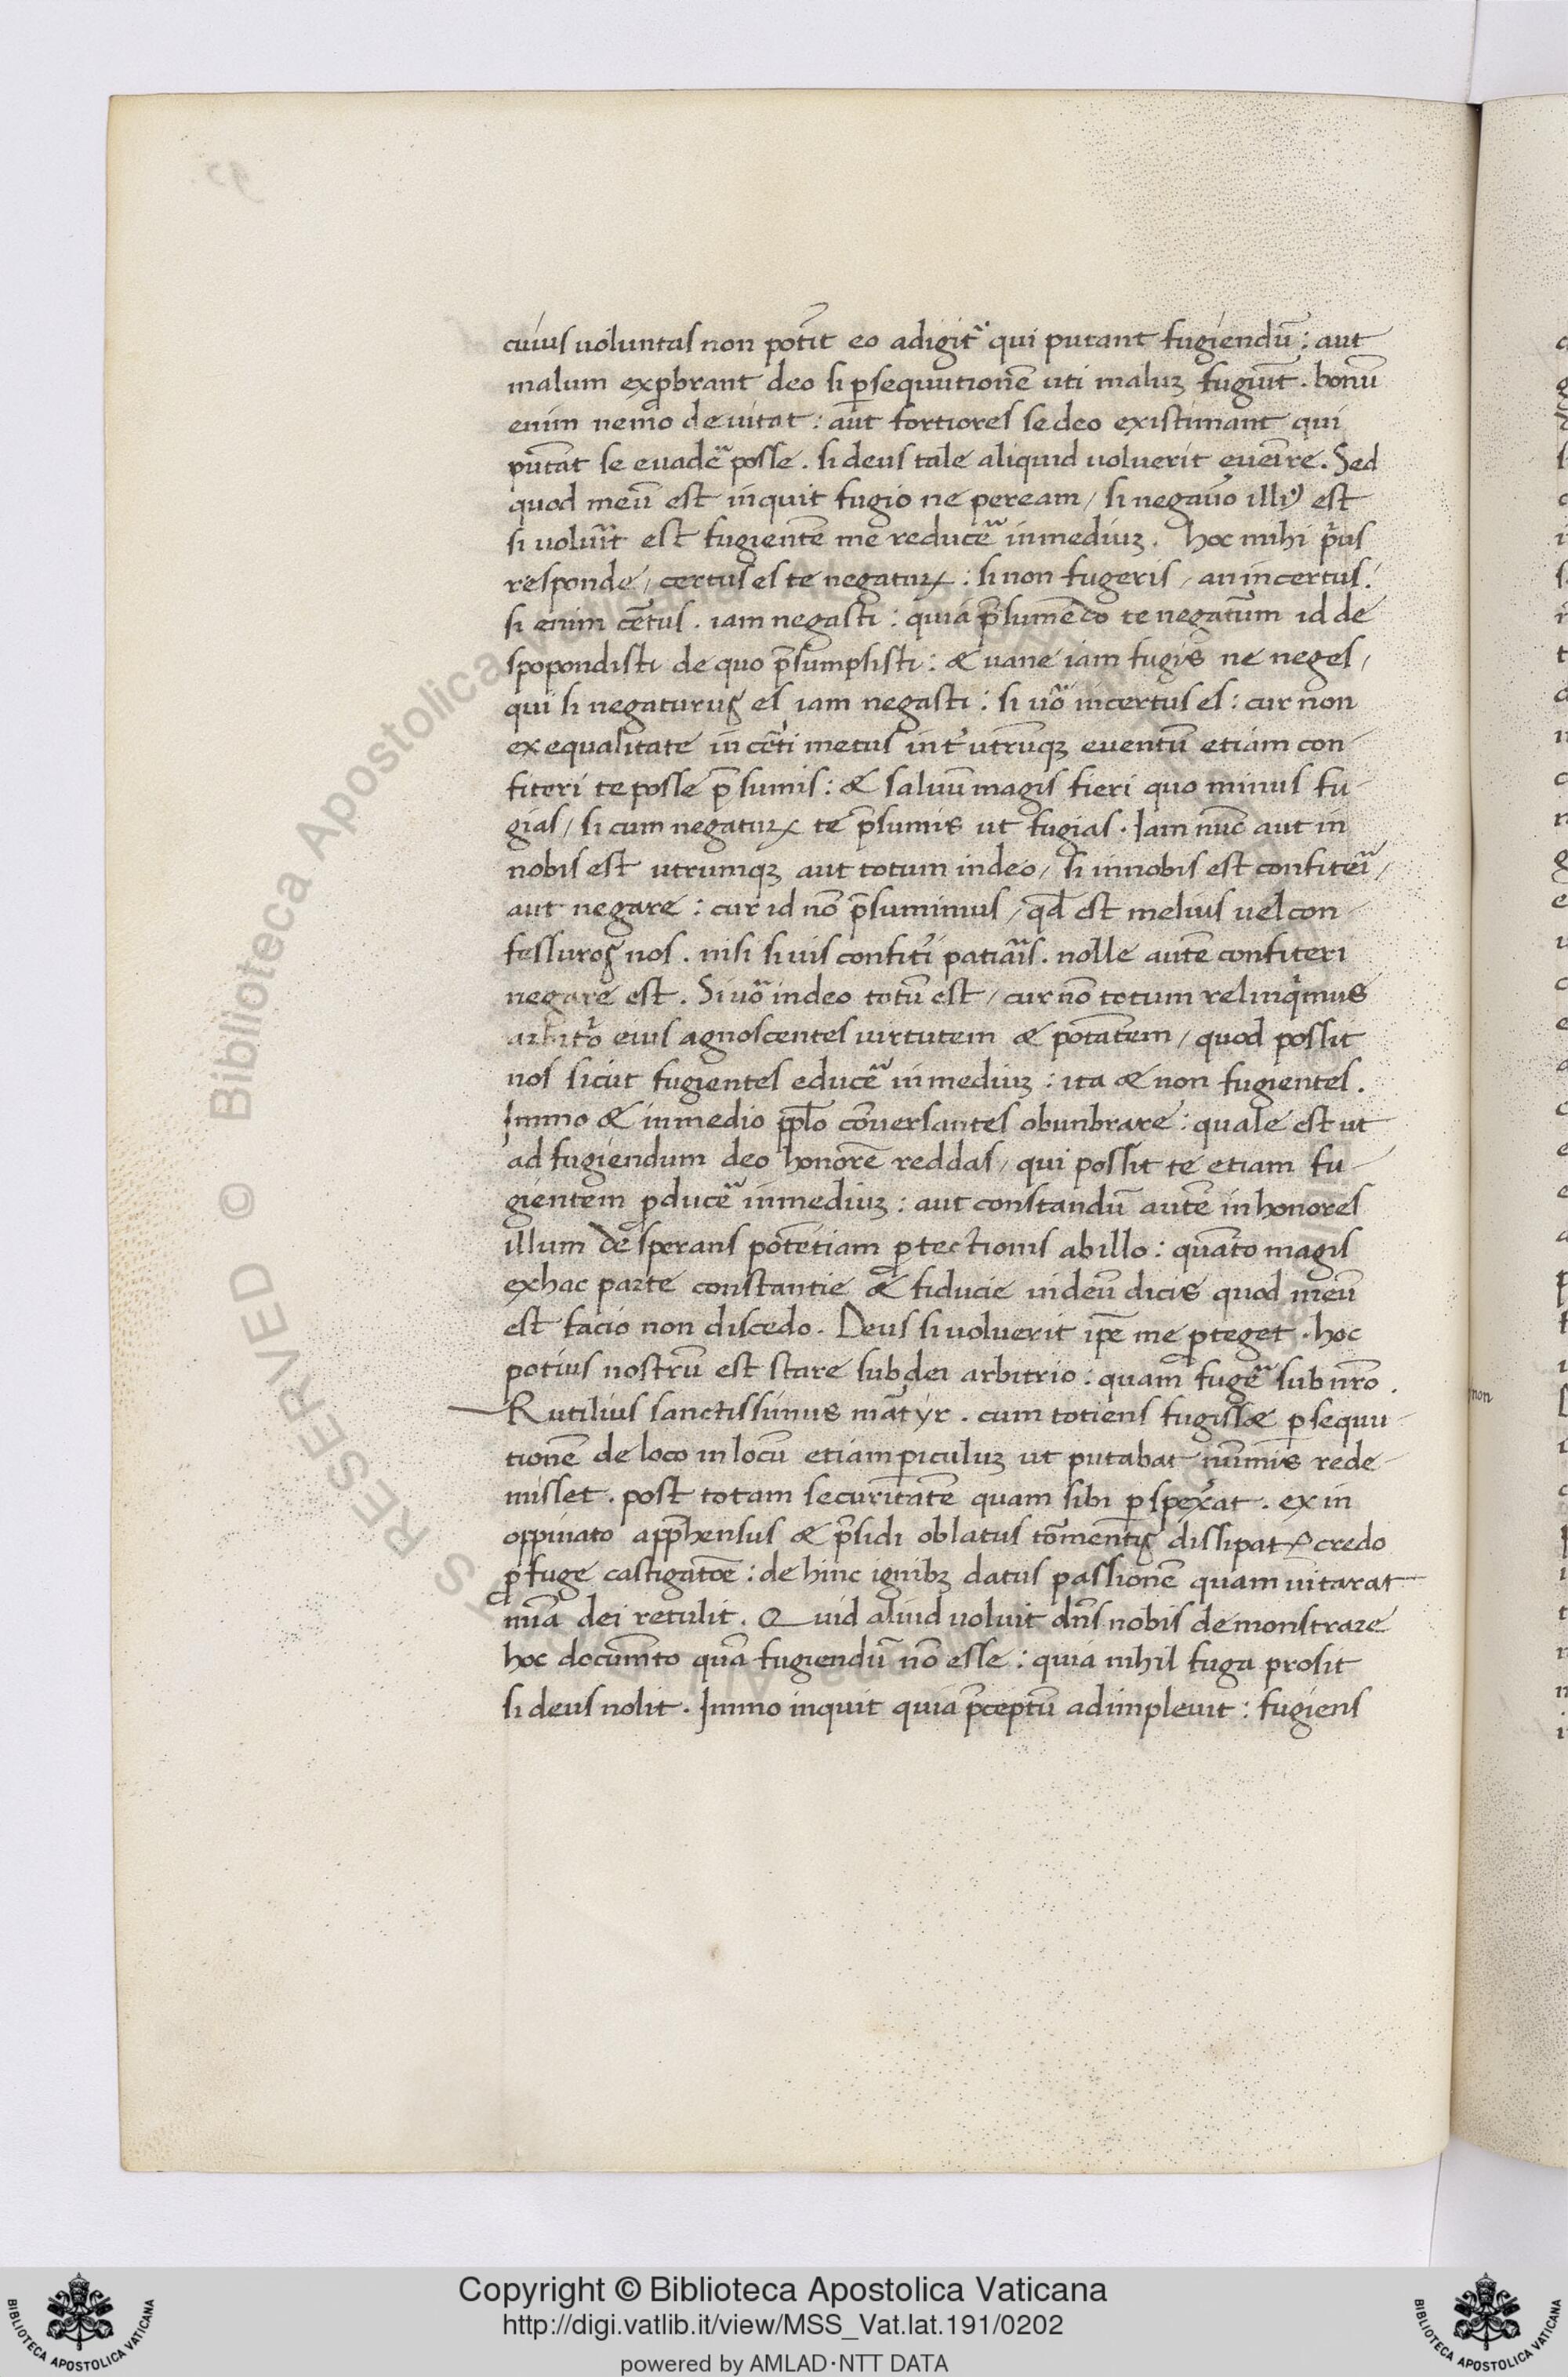 cuius uoluntas non potīt eo adigit᷑ qui putant fugiendū : aut
malum exꝓbrant deo si ꝑsequutionē uti maluꝫ fugiūt . bonū
enim nemo deuitat : aut fortiores se deo existimant qui
putāt se euadē᷑ posse . si deus tale aliquid uoluerit euēire . Sed
quod meū est inquit fugio ne peream / si negauo᷑ illiꝰ est
si uolu᷑it est fugientē me reducē᷑ in mediuꝫ . hoc mihi pͥus
responde / certus es te negatuꝝ : si non fugeris / an incertus .
si enim c̄etus . iam negasti : quia p̄sumēdo te negatūm id de
spopondisti de quo p̄sumpsisti : & uane iam fugis ne neges /
qui si negaturus es iam negasti : si uo᷑ incertus es : cur non
ex equalitate incēti metus int᷑ utrūnqꝫ euentū etiam con-
fiteri te posse p̄sumis : & saluū magis fieri quo minus fu-
gias / si cum negatuꝝ te p̄sumis ut fugias . Iam nūc aut in
nobis est utrumqꝫ aut totum in deo / si in nobis est confitei᷑ /
aut negare : cur id nō p̄sumimus / qd̄ est melius uel con-
fessuros nos . nisi si uis confit᷑i patia᷑is . nolle autē confiteri
negare est . Si uo᷑ in deo totū est / cur nō totum relinqͥmus
arbit᷑o eius agnoscentes uirtutem & potātem / quod possit
nos sicut fugientes educē᷑ in mediuꝫ : ita & non fugientes .
Immo & in medio ppl̄o cōuersantes obunbrare : quale est ut
ad fugiendum deo honorē reddas / qui possit te etiam fu-
gientem ꝓducē᷑ in mediuꝫ : aut constandū autē in honores
illum desperans potētiam ꝓtectionis ab illo : quāto magis
ex hac parte constantie & fiducie in deū dicis quod meū
est facio non discedo . Deus si uoluerit ip̄e me ꝓteget . hoc
potius nostrū est stare sub dei arbitrio : quam fugē᷑ sub nr̄o .
Rutilius sanctissimus māty̍r . cum totiens fugiss& ꝑsequu-
tionē de loco in locū etiam ꝑiculuꝫ ut putabat nūmis rede-
misset . post totam securitatē quam sibi ꝓspex᷑at . ex in
oppinato app̄hensus & p̄sidi oblatus tōmentis dissipatꝰ credo
ꝓ fuge castigatōe : dehinc ignibꝫ datus passionē quam uitarat
mīa dei retulit . Quid aliud uoluit dn̄s nobis demonstrare
hoc documēto quā fugiendū nō esse : quia nihil fuga prosit
si deus nolit . Immo inquit quia p̄ceptū adimpleuit : fugiens
non
Copyright © Biblioteca Apostolica Vaticana
http://digi.vatlib.it/view/MSS_Vat.lat.191/0202
powered by AMLAD·NTT DATA
BIBLIOTECA APOSTOLICA VATICANA
BIBLIOTECA APOSTOLICA VATICANA